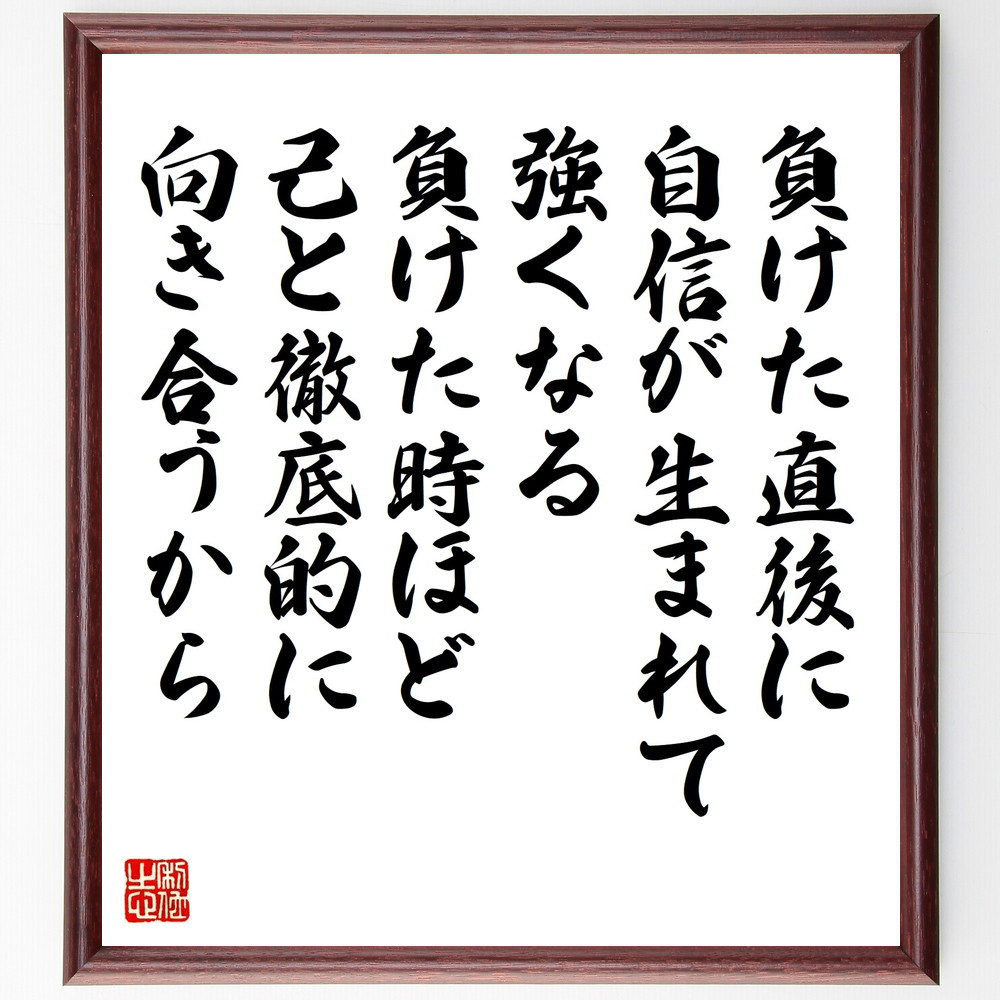 負けた直後に
自信が生まれて
強くなる
負けた時ほど
己と徹底的に
向き合うから